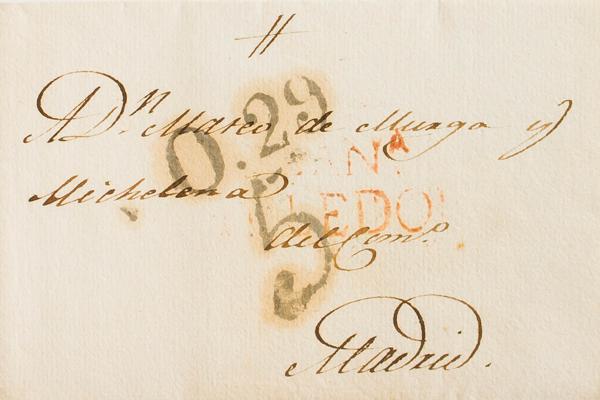 A D.n Mateo de Murga y
Michelena
del Com.o
Madrid.
O.29
5